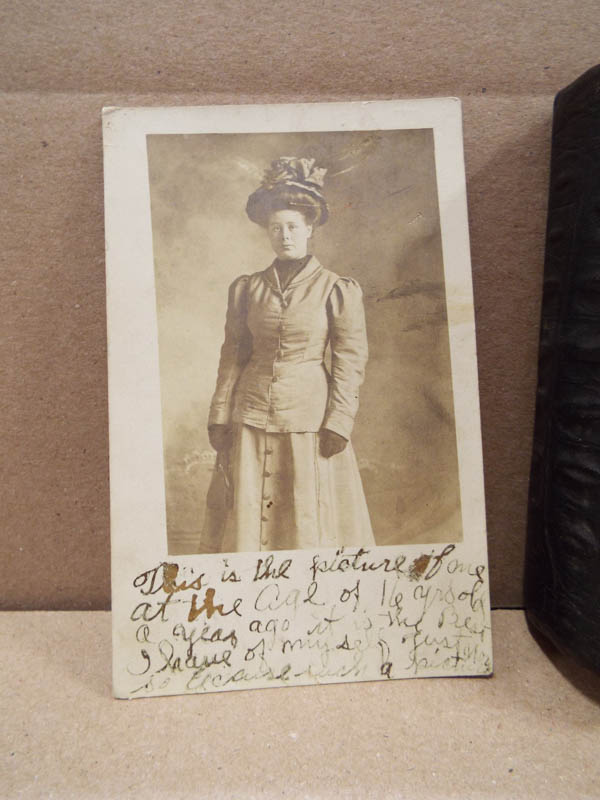 This is the picture of me
at the Age of 16 yrs old
a year ago it is the Best
I have of myself Just
so because such a